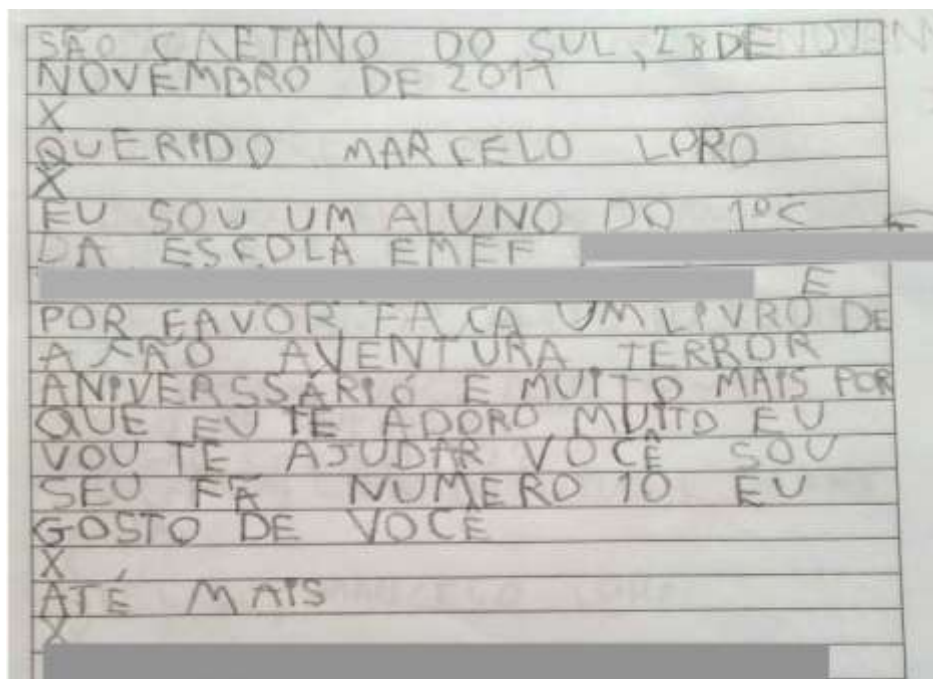 SÃO CAETANO DO SUL, 28 DE
NOVEMBRO DE 2011
X
QUERIDO MARCELO LORO
X
EU SOU UM ALUNO DO 1º C
DA ESCOLA EMEF
E
POR FAVOR FAÇA UM LIVRO DE
AÇÃO AVENTURA TERROR
ANIVERSSÁRIO E MUITO MAIS POR
QUE EU TE ADORO MUITO EU
VOU TE AJUDAR VOCÊ SOU
SEU FÃ NUMERO 10 EU
GOSTO DE VOCÊ
X
ATÉ MAIS
X